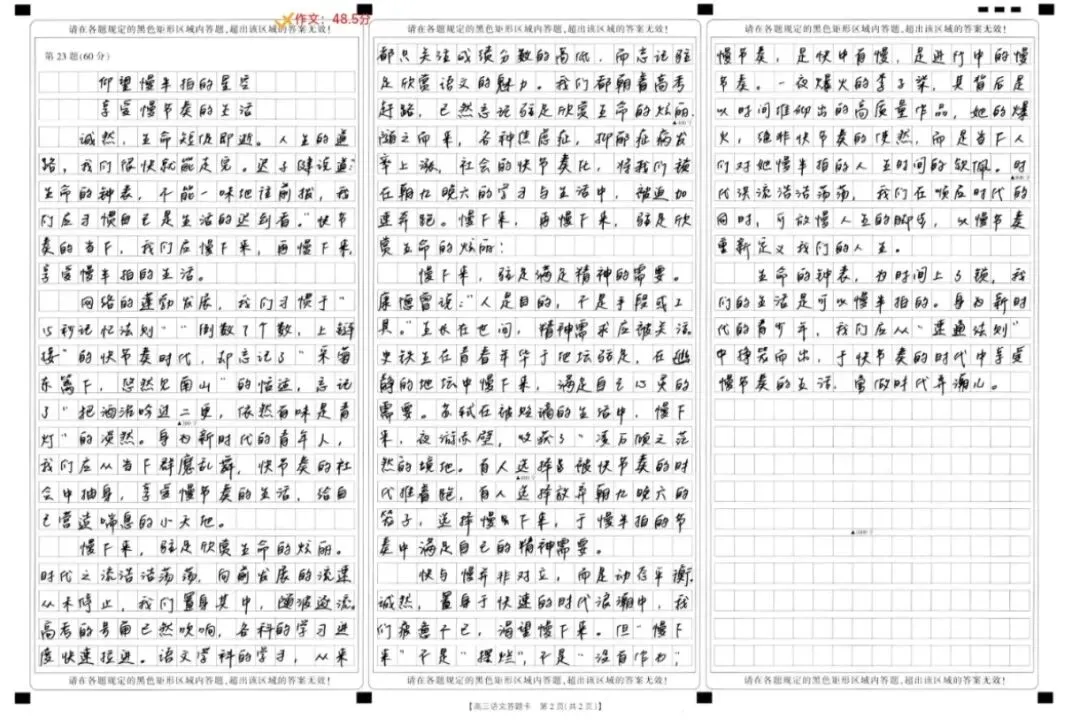 作文：48.5分
请在各题规定的黑色矩形区域内答题,超出该区域的答案无效！
第23题(60分)
仰望慢半拍的星空
享受慢节奏的生活
诚然，生命短促即逝。人生的道
路，我们很快就能走完。迟子建说道：“
生命的钟表，不能一味地往前拨，我
们应习惯自己是生活的迟到者。”快节
奏的当下，我们应慢下来，再慢下来，
享受慢半拍的生活。
网络的蓬勃发展，我们习惯于“
15秒记忆法则”“倒数7个数，上链
接”的快节奏时代，却忘记了“采菊
东篱下，悠然见南山”的恬适，忘记
了“把酒浴吟进二更，依然有味是青
灯”的漠然。身为新时代的青年人，
我们应从当下群魔乱舞，快节奏的社
会中抽身，享受慢节奏的生活，给自
己营造喘息的小天地。
慢下来，驻足欣赏生命的炫丽。
时代之流浩浩荡荡，向前发展的流速
从未停止，我们置身其中，随波逐流。
高考的号角已然吹响，各科的学习进
度快速推进。语文学科的学习，从来
请在各题规定的黑色矩形区域内答题,超出该区域的答案无效！
请在各题规定的黑色矩形区域内答题,超出该区域的答案无效！
都只关注成绩分数的高低，而忘记驻
足欣赏语文的魅力。我们都朝着高考
赶路，已然忘记驻足欣赏生命的炫丽。
随之而来，各种焦虑症，抑郁症病发
率上涨，社会的快节奏化，将我们被
在朝九晚六的学习与生活中，被迫加
速奔跑。慢下来，再慢下来，驻足欣
赏生命的炫丽！
慢下来，驻足满足精神的需要。
康德曾说：“人是目的，不是手段或工
具。”生长在世间，精神需求应被关注。
史铁生在青春年华于地坛驻足，在幽
静的地坛中慢下来，满足自己心灵的
需要。苏轼在被贬谪的生活中，慢下
来，夜游赤壁，收获了“凌万顷之茫
然的境地。有人选择被快节奏的时
代推着跑，有人选择放弃朝九晚六的
笼子，选择慢下来，于慢半拍的节
奏中满足自己的精神需要。
快与慢并非对立，而是动态平衡。
诚然，置身于快速的时代浪潮中，我
们疲惫不已，渴望慢下来。但“慢下
来”不是“摆烂”，不是“没有作为”，
请在各题规定的黑色矩形区域内答题,超出该区域的答案无效！
请在各题规定的黑色矩形区域内答题,超出该区域的答案无效！
慢节奏，是快中有慢，是进行中的慢
节奏。一夜爆火的李子柒，其背后是
以时间堆彻出的高质量作品，她的爆
火，绝非快节奏的使然，而是当下人
们对她慢半拍的人生时间的钦佩。时
代洪流浩浩荡荡，我们在顺应时代的
同时，可放慢人生的脚步，以慢节奏
重新定义我们的人生。
生命的钟表，为时间上了锁，我
们的生活是可以慢半拍的。身为新时
代的青少年，我们应从“速通法则”
中挣脱而出，于快节奏的时代中享受
慢节奏的生活，当做时代弄潮儿。
请在各题规定的黑色矩形区域内答题,超出该区域的答案无效！
【高三语文答题卡 第2页(共2页)】